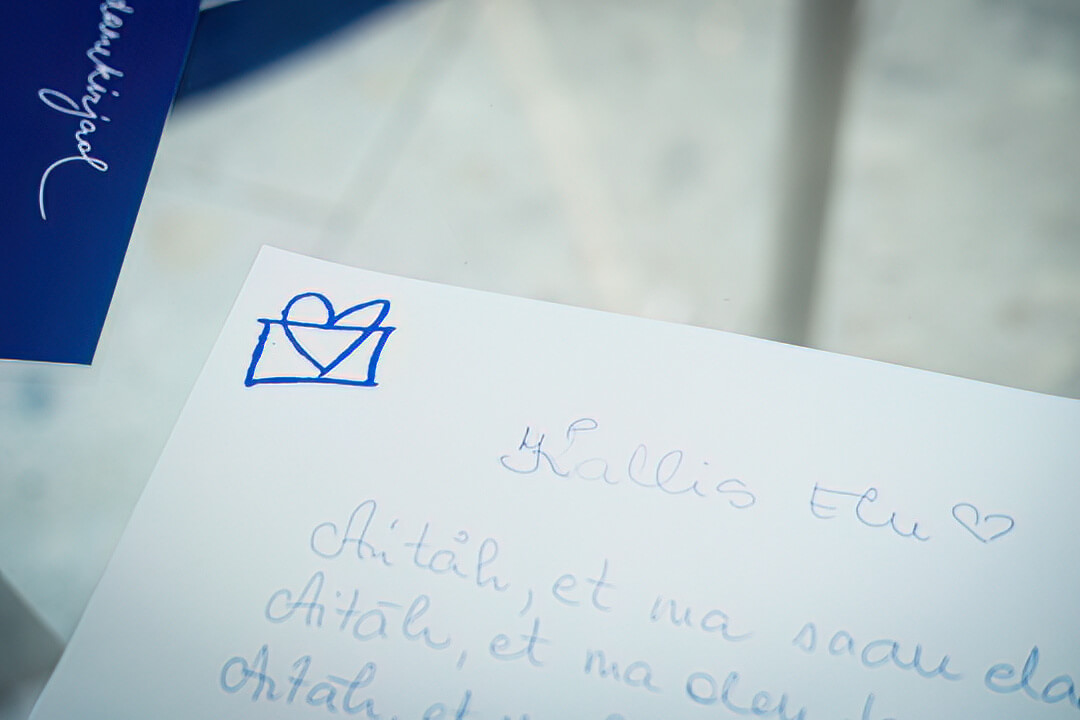 damkirjad
Kallis Elu ♡
Aitäh, et ma saan ela
Aitäh, et ma olen
Aitäh, et